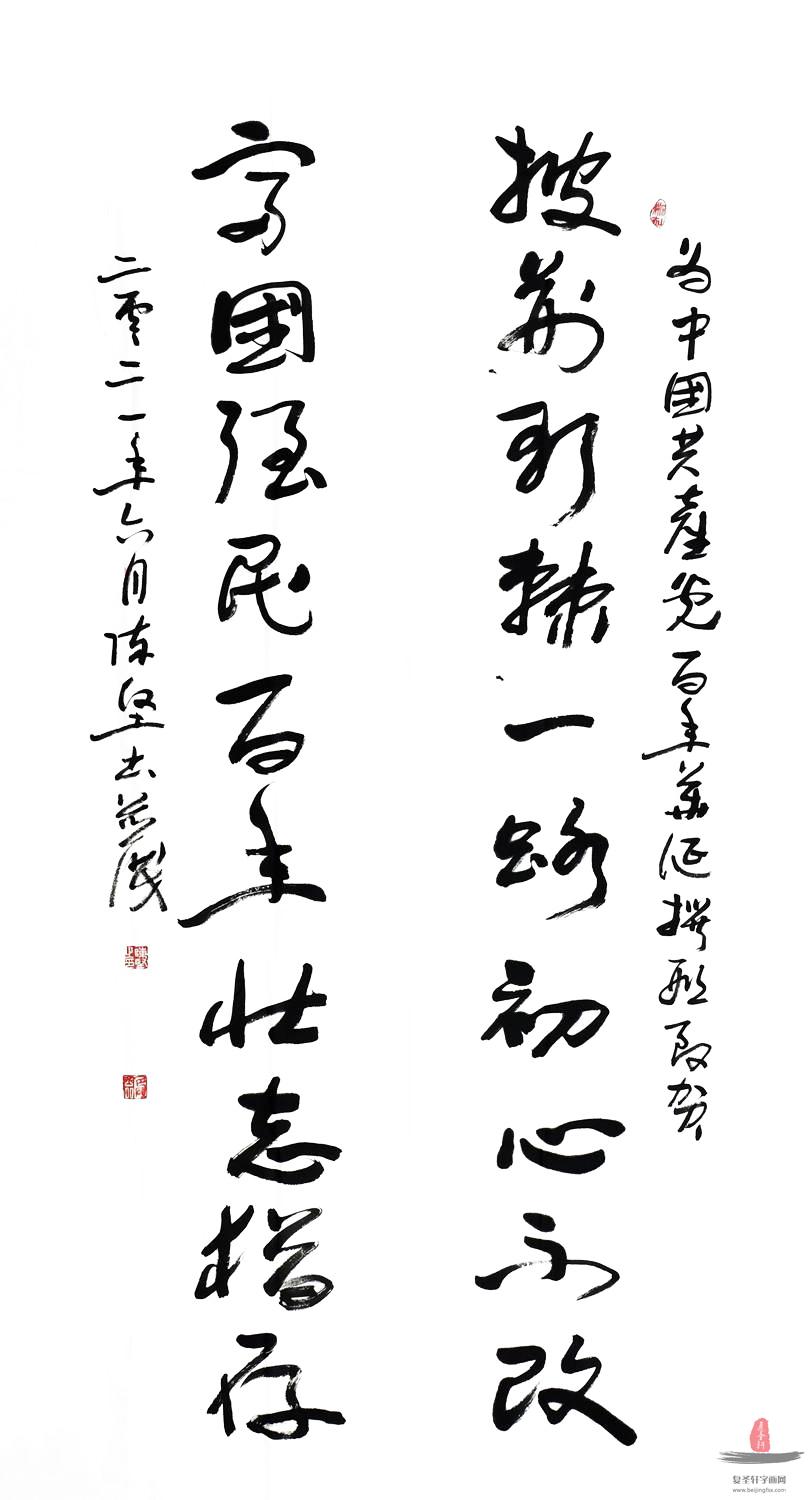 为中國共產党百年華诞撰联致贺
披荆斩棘一路初心不改
富國强民百年壮志猶存
二零二一年六月陈坚书
复圣轩字画网
www.beijingfsx.com